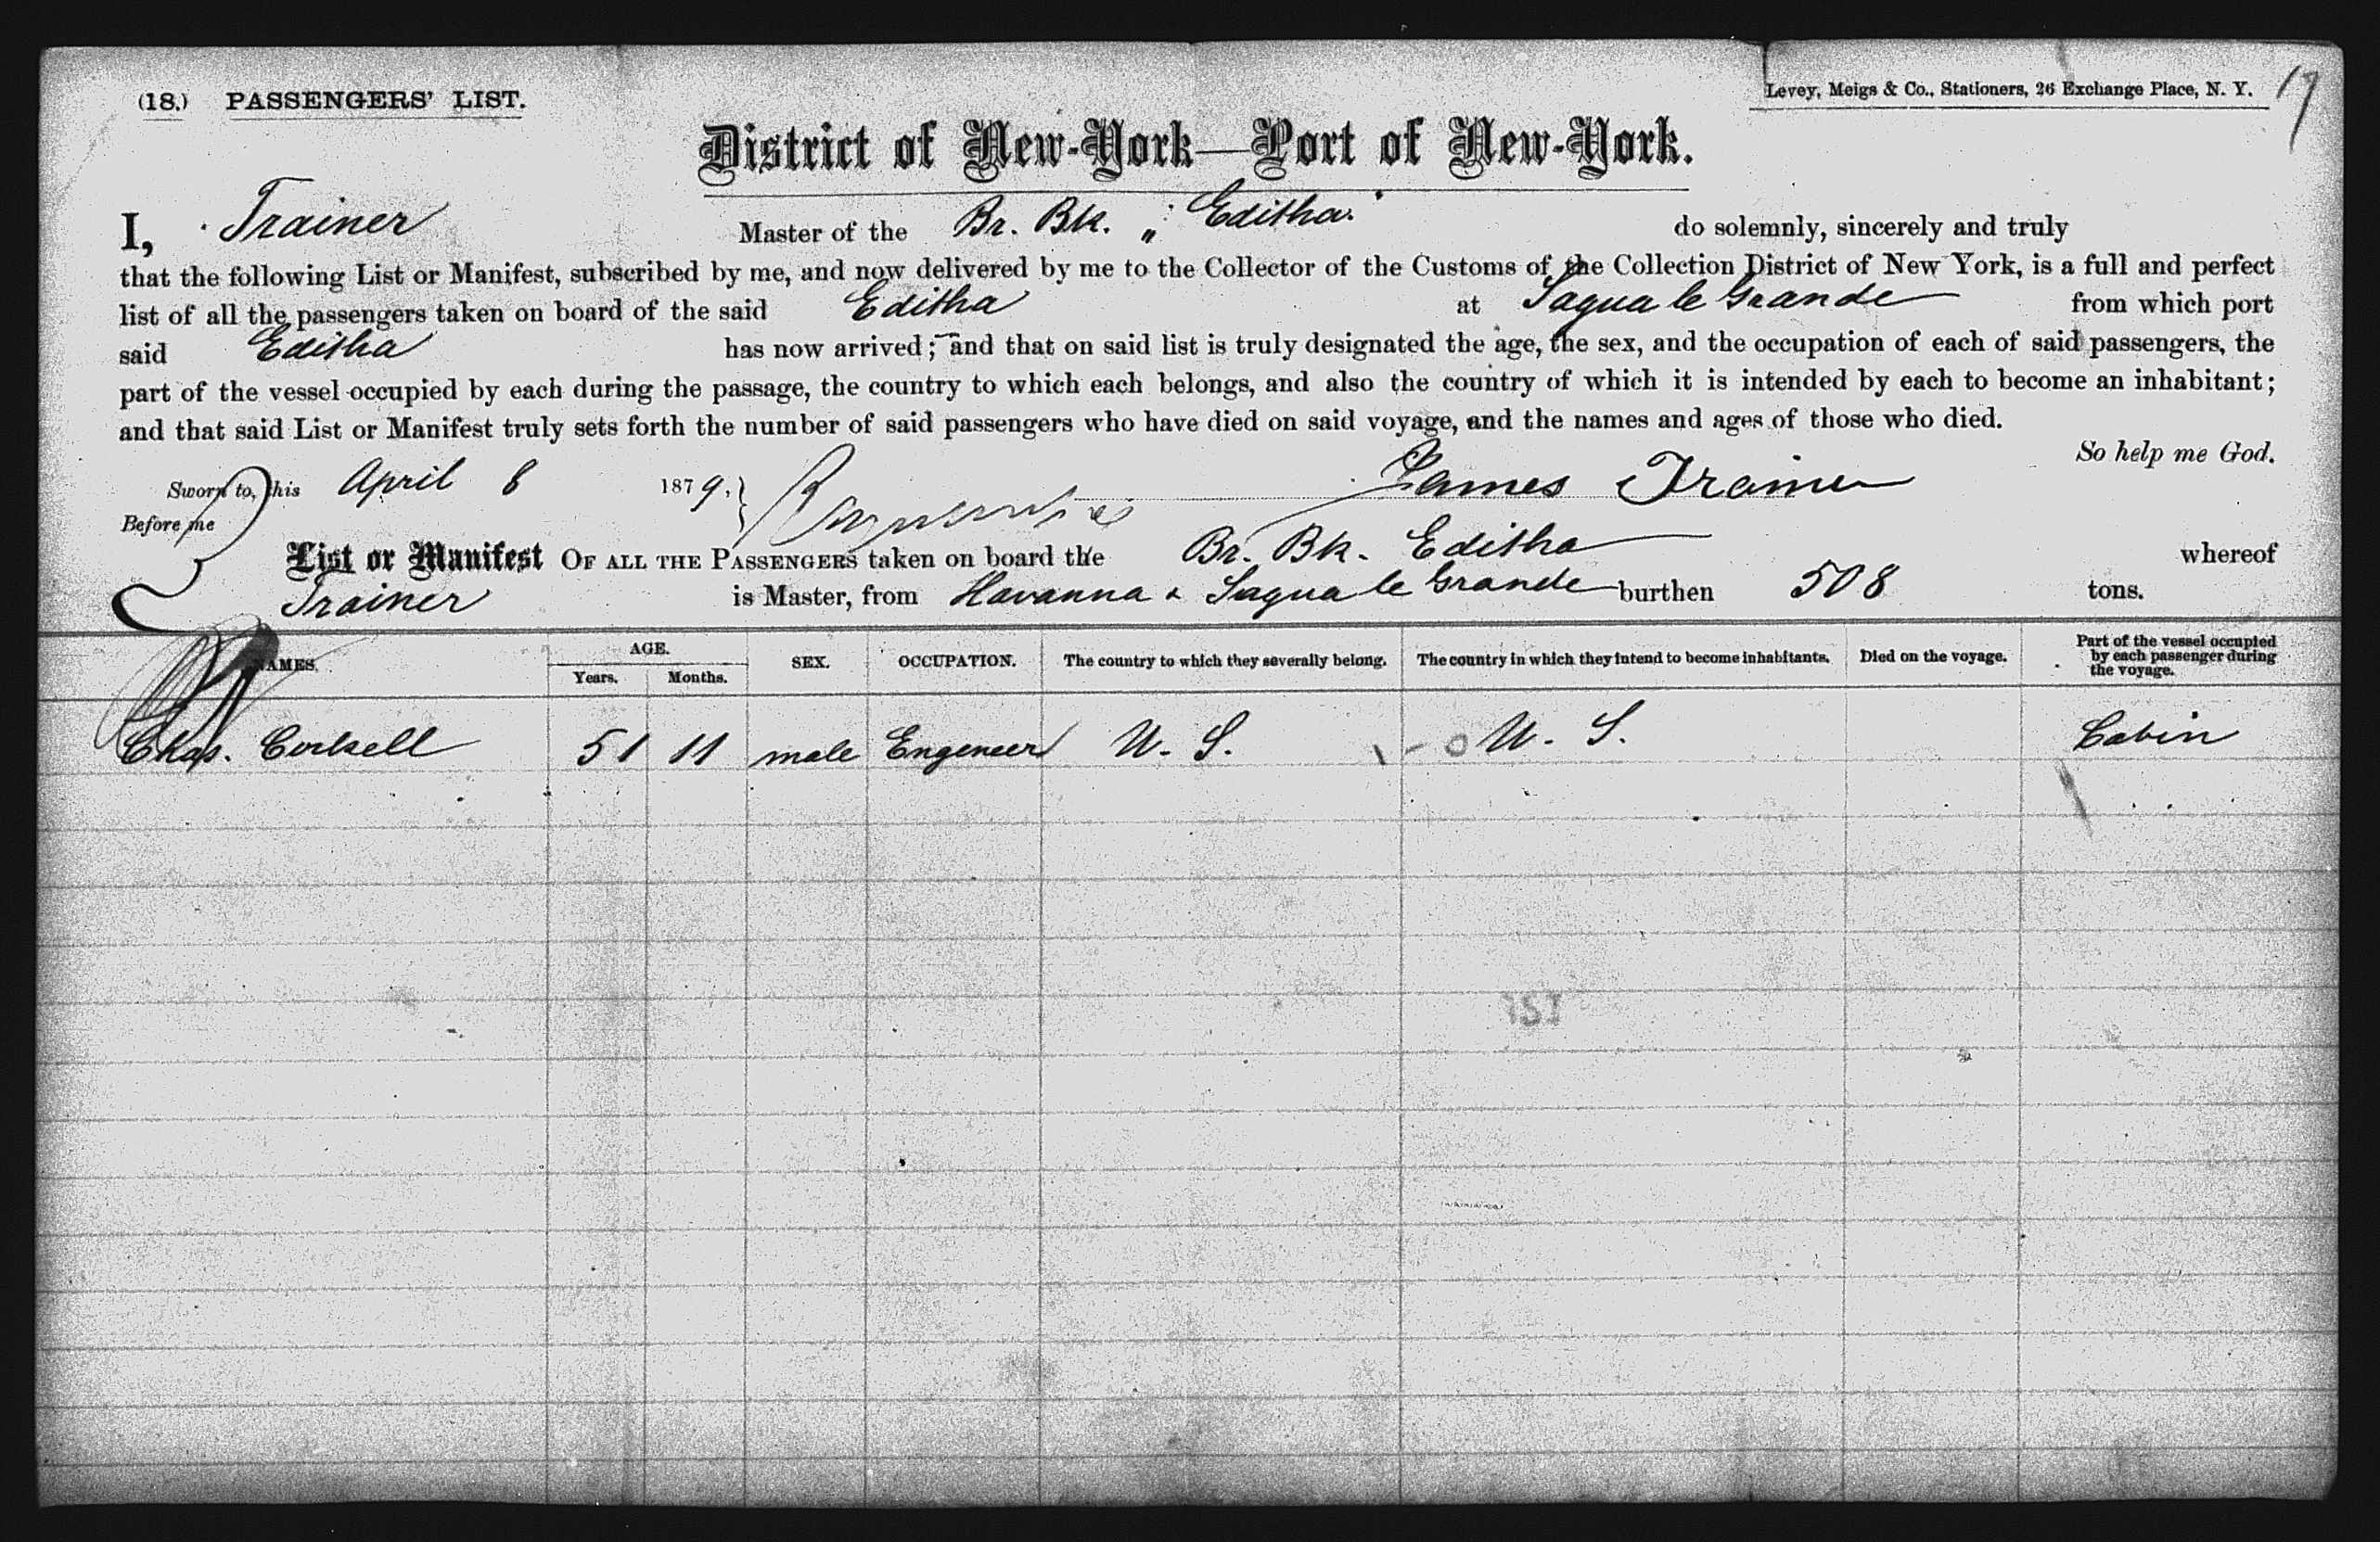 (18.) PASSENGERS' LIST.
Levey, Meigs & Co., Stationers, 26 Exchange Place, N. Y. 17
District of New-York—Port of New-York.
I, Trainer Master of the Br. Bk. „ Editha." do solemnly, sincerely and truly
that the following List or Manifest, subscribed by me, and now delivered by me to the Collector of the Customs of the Collection District of New York, is a full and perfect
list of all the passengers taken on board of the said Editha at Sagua le Grande from which port
said Editha has now arrived; and that on said list is truly designated the age, the sex, and the occupation of each of said passengers, the
part of the vessel occupied by each during the passage, the country to which each belongs, and also the country of which it is intended by each to become an inhabitant;
and that said List or Manifest truly sets forth the number of said passengers who have died on said voyage, and the names and ages of those who died.
So help me God.
Sworn to, this April 8 1879. James Trainer
Before me
List or Manifest OF ALL THE PASSENGERS taken on board the Br. Bk. Editha whereof
Trainer is Master, from Havanna & Sagua le Grande burthen 508 tons.
NAMES. AGE. Years. Months. SEX. OCCUPATION. The country to which they severally belong. The country in which they intend to become inhabitants. Died on the voyage. Part of the vessel occupied by each passenger during the voyage.
Chas. 51 11 male Engeneer U. S. U. S. Cabin